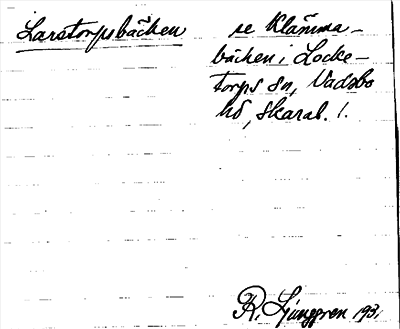 Larstorpsbäcken se Klämma-
bäcken i Locke-
torps sn, Vadsbo
hd, Skarab. l.
R. Ljunggren 1931